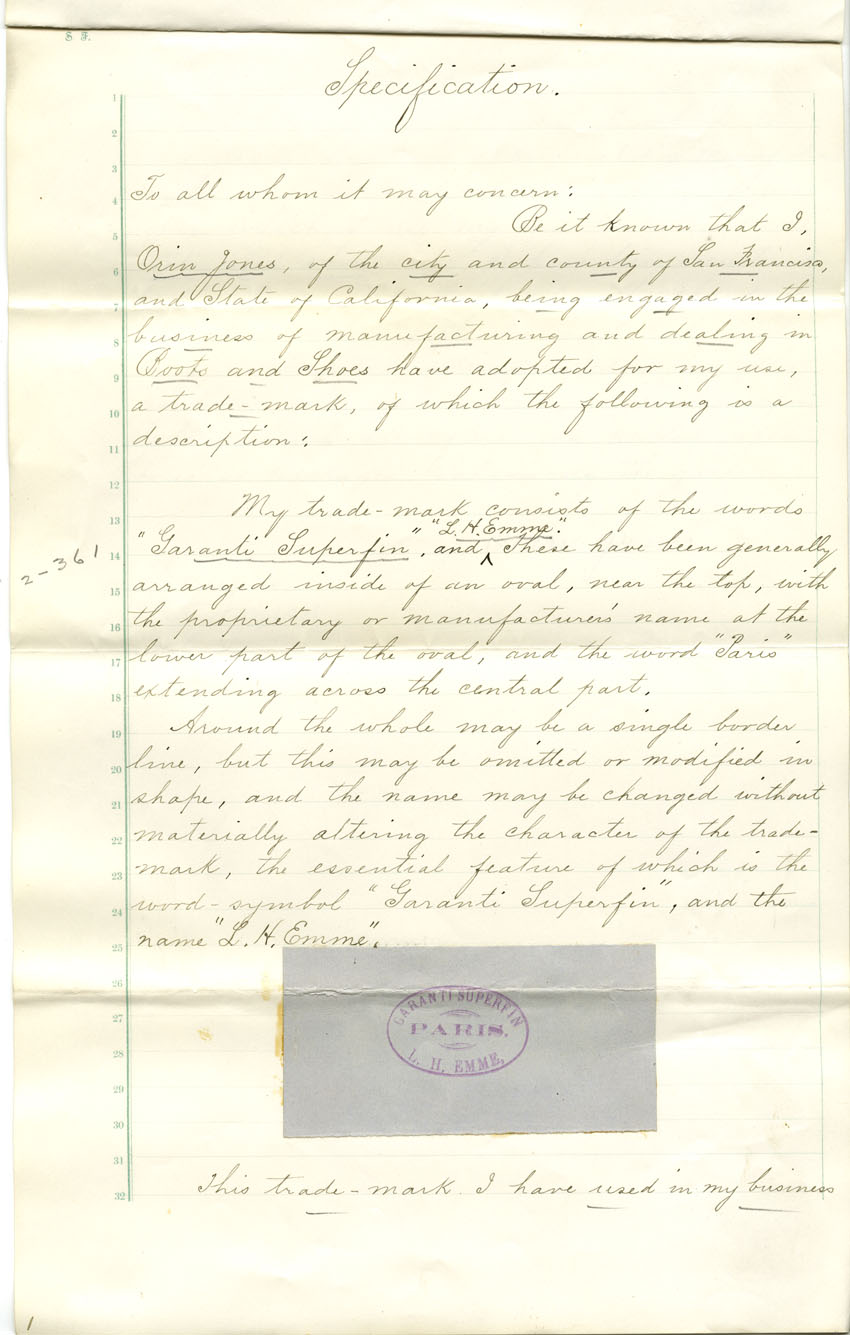 S F.
Specification.
1
2
3
To all whom it may concern:
4
Be it known that I,
5
Orin Jones, of the city and county of San Francisco,
6
and State of California, being engaged in the
7
business of manufacturing and dealing in
8
Boots and Shoes have adopted for my use,
9
a trade-mark, of which the following is a
10
description:
11
12
My trade-mark consists of the words
13
"L. H. Emme".
"Garanti Superfin", and ^ These have been generally
14
2-361
arranged inside of an oval, near the top, with
15
the proprietary or manufacturer's name at the
16
lower part of the oval, and the word "Paris"
17
extending across the central part.
18
Around the whole may be a single border
19
line, but this may be omitted or modified in
20
shape, and the name may be changed without
21
materially altering the character of the trade-
22
mark, the essential feature of which is the
23
word-symbol "Garanti Superfin", and the
24
name "L. H. Emme".
25
26
GARANTI SUPERFIN
27
PARIS.
L. H. EMME,
28
29
30
31
This trade-mark I have used in my business
32
1